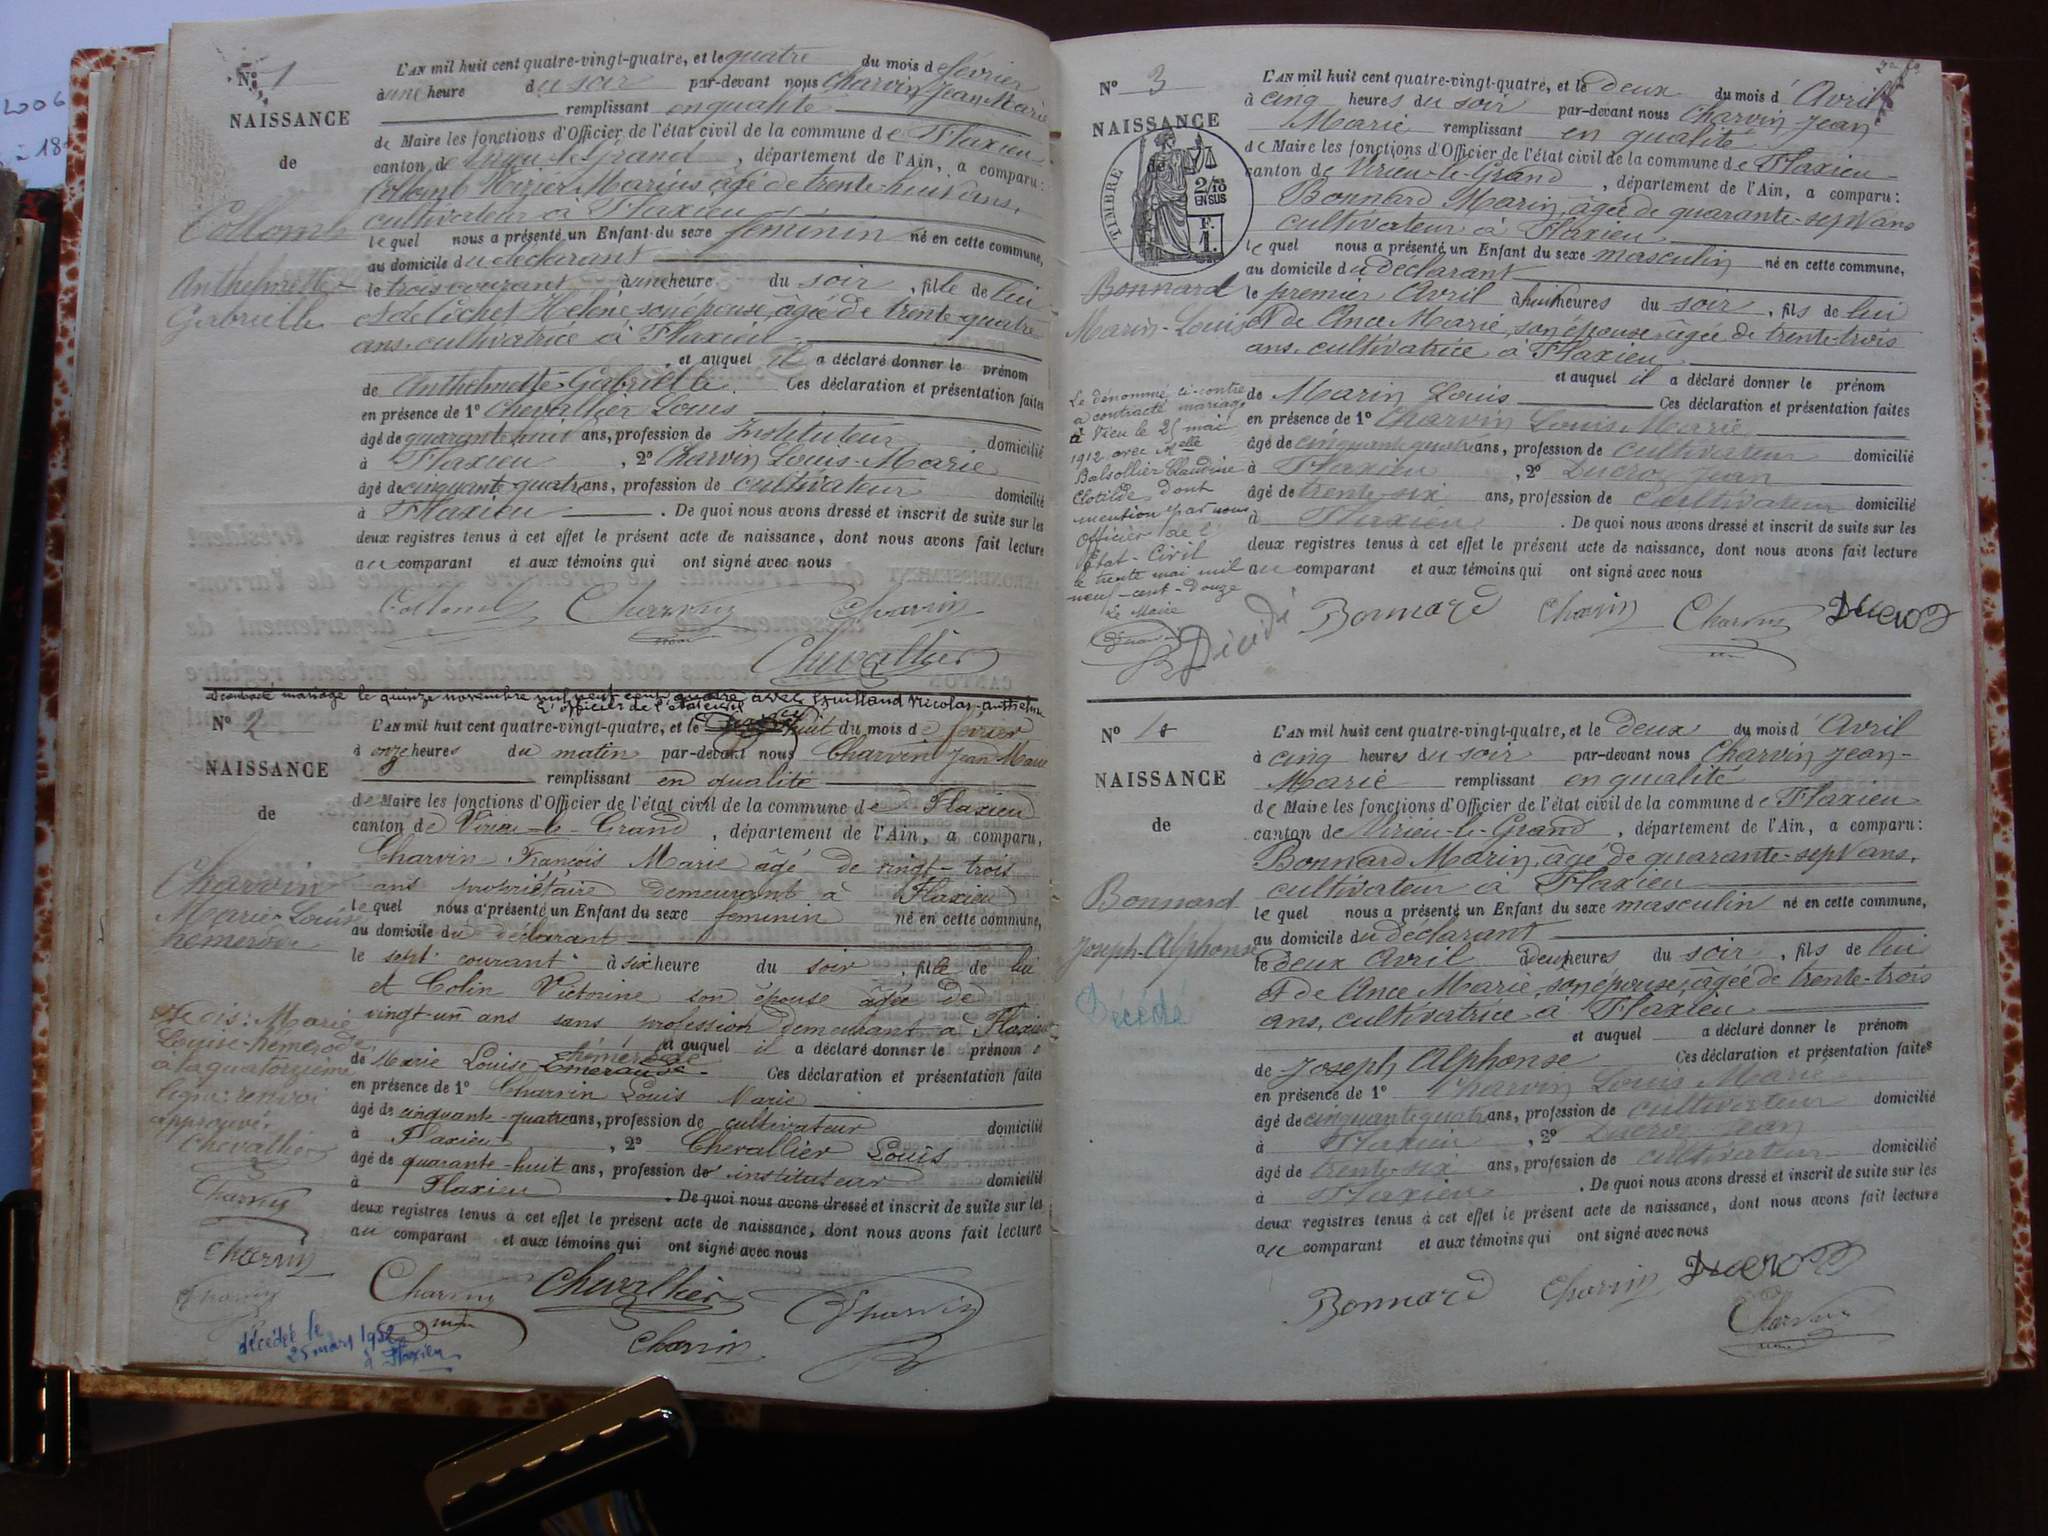 N° 1
NAISSANCE
de
Collomb
Anthelmette-
Gabrielle
L'AN mil huit cent quatre-vingt-quatre, et le quatre du mois de février
à une heure du soir par-devant nous Charvin Jean Marie
remplissant en qualité
de Maire les fonctions d'Officier de l'état civil de la commune de Flaxieu
canton de Virieu-le-Grand, département de l'Ain, a comparu:
Collomb Marius âgé de trente-huit ans,
cultivateur à Flaxieu
lequel nous a présenté un Enfant du sexe féminin né en cette commune,
au domicile du déclarant
le trois courant à une heure du soir, fille de lui
et de Hélène son épouse, âgée de trente-quatre
ans, cultivatrice à Flaxieu
et auquel il a déclaré donner le prénom
de Anthelmette-Gabrielle Ces déclaration et présentation faites
en présence de 1° Chevallier Louis
âgé de quarante huit ans, profession de Instituteur domicilié
à Flaxieu, 2° Charvin Louis-Marie
âgé de cinquante quatre ans, profession de cultivateur domicilié
à Flaxieu. De quoi nous avons dressé et inscrit de suite sur les
deux registres tenus à cet effet le présent acte de naissance, dont nous avons fait lecture
au comparant et aux témoins qui ont signé avec nous
Collomb Charvin Charvin
Chevallier
a contracté mariage le quinze novembre mil neuf cent quatre avec Guilland Nicolas-Anthelme
L'officier de l'état civil
N° 2
NAISSANCE
de
Charvin
Marie-Louise
hémerode
L'AN mil huit cent quatre-vingt-quatre, et le huit du mois de février
à onze heures du matin par-devant nous Charvin Jean Marie
remplissant en qualité
de Maire les fonctions d'Officier de l'état civil de la commune de Flaxieu
canton de Virieu-le-Grand, département de l'Ain, a comparu,
Charvin François Marie âgé de vingt-trois
ans propriétaire demeurant à Flaxieu
lequel nous a présenté un Enfant du sexe féminin né en cette commune,
au domicile du déclarant
le sept courant à six heure du soir, fille de lui
et Colin Victorine son épouse âgée de
vingt-un ans sans profession demeurant à Flaxieu
hémérode et auquel il a déclaré donner le prénom
de Marie Louise Emeraude Ces déclaration et présentation faites
en présence de 1° Charvin Louis Marie
âgé de cinquante-quatre ans, profession de cultivateur domicilié
à Flaxieu, 2° Chevallier Louis
âgé de quarante-huit ans, profession de instituteur domicilié
à Flaxieu. De quoi nous avons dressé et inscrit de suite sur les
deux registres tenus à cet effet le présent acte de naissance, dont nous avons fait lecture
au comparant et aux témoins qui ont signé avec nous
Marie
Louise-hémerode
à la quatorzième
ligne: renvoi
approuvé.
Chevallier
Charvin
Charvin
Charvin
Charvin Chevallier Charvin
Charvin
décédée le
25 mars
à Flaxieu
N° 3
NAISSANCE
de
TIMBRE
2/10
EN SUS
F.
1.
Bonnard
Marin-Louis
L'AN mil huit cent quatre-vingt-quatre, et le deux du mois d'Avril
à cinq heures du soir par-devant nous Charvin Jean
Marie remplissant en qualité
de Maire les fonctions d'Officier de l'état civil de la commune de Flaxieu
canton de Virieu-le-Grand, département de l'Ain, a comparu:
Bonnard Marin, âgé de quarante-sept ans
cultivateur à Flaxieu
lequel nous a présenté un Enfant du sexe masculin né en cette commune,
au domicile du déclarant
le premier Avril à huit heures du soir, fils de lui
et de Ance Marie, son épouse, âgée de trente-trois
ans, cultivatrice à Flaxieu
et auquel il a déclaré donner le prénom
de Marin Louis Ces déclaration et présentation faites
en présence de 1° Charvin Louis Marie
âgé de cinquante quatre ans, profession de cultivateur domicilié
à Flaxieu, 2° Ducroz Jean
âgé de trente-six ans, profession de cultivateur domicilié
à Flaxieu. De quoi nous avons dressé et inscrit de suite sur les
deux registres tenus à cet effet le présent acte de naissance, dont nous avons fait lecture
au comparant et aux témoins qui ont signé avec nous
Le dénommé ci-contre
a contracté mariage
à Vieu le 25 mai
1912 avec Melle
Balsollier Claudine
Clotilde, dont
mention par nous
officier de l'
Etat-Civil
le trente mai mil
neuf-cent-douze
Le Maire
Décédé
Bonnard Charvin Charvin Ducroz
N° 4
NAISSANCE
de
Bonnard
Joseph-Alphonse
Décédé
L'AN mil huit cent quatre-vingt-quatre, et le deux du mois d'Avril
à cinq heures du soir par-devant nous Charvin Jean-
Marie remplissant en qualité
de Maire les fonctions d'Officier de l'état civil de la commune de Flaxieu
canton de Virieu-le-Grand, département de l'Ain, a comparu:
Bonnard Marin, âgé de quarante-sept ans,
cultivateur à Flaxieu
lequel nous a présenté un Enfant du sexe masculin né en cette commune,
au domicile du déclarant
le deux Avril à deux heures du soir, fils de lui
et de Ance Marie, son épouse, âgée de trente-trois
ans, cultivatrice à Flaxieu
et auquel a déclaré donner le prénom
de Joseph Alphonse Ces déclaration et présentation faites
en présence de 1° Charvin Louis Marie
âgé de cinquante quatre ans, profession de cultivateur domicilié
à Flaxieu, 2° Ducroz Jean
âgé de trente-six ans, profession de cultivateur domicilié
à Flaxieu. De quoi nous avons dressé et inscrit de suite sur les
deux registres tenus à cet effet le présent acte de naissance, dont nous avons fait lecture
au comparant et aux témoins qui ont signé avec nous
Bonnard Charvin Ducroz
Charvin